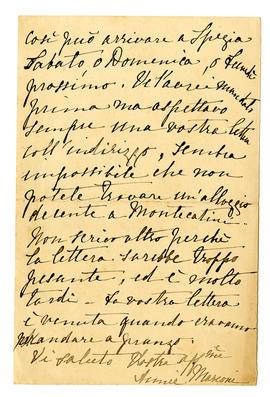 così può arrivare a Spezia
Sabato o Domenica, o Lunedì
prossimo. Ve l'avrei mandato
prima ma aspettavo
sempre una vostra lettera
coll'indirizzo, sembra
impossibile che non
potete trovare un'alloggio
decente a Montecatini.
Non scrivo altro perchè
la lettera sarebbe troppo
pesante, ed è molto
tardi - La vostra lettera
è venuta quando eravamo
per andare a pranzo.
Vi saluto Vostra aff.ma
Annie Marconi